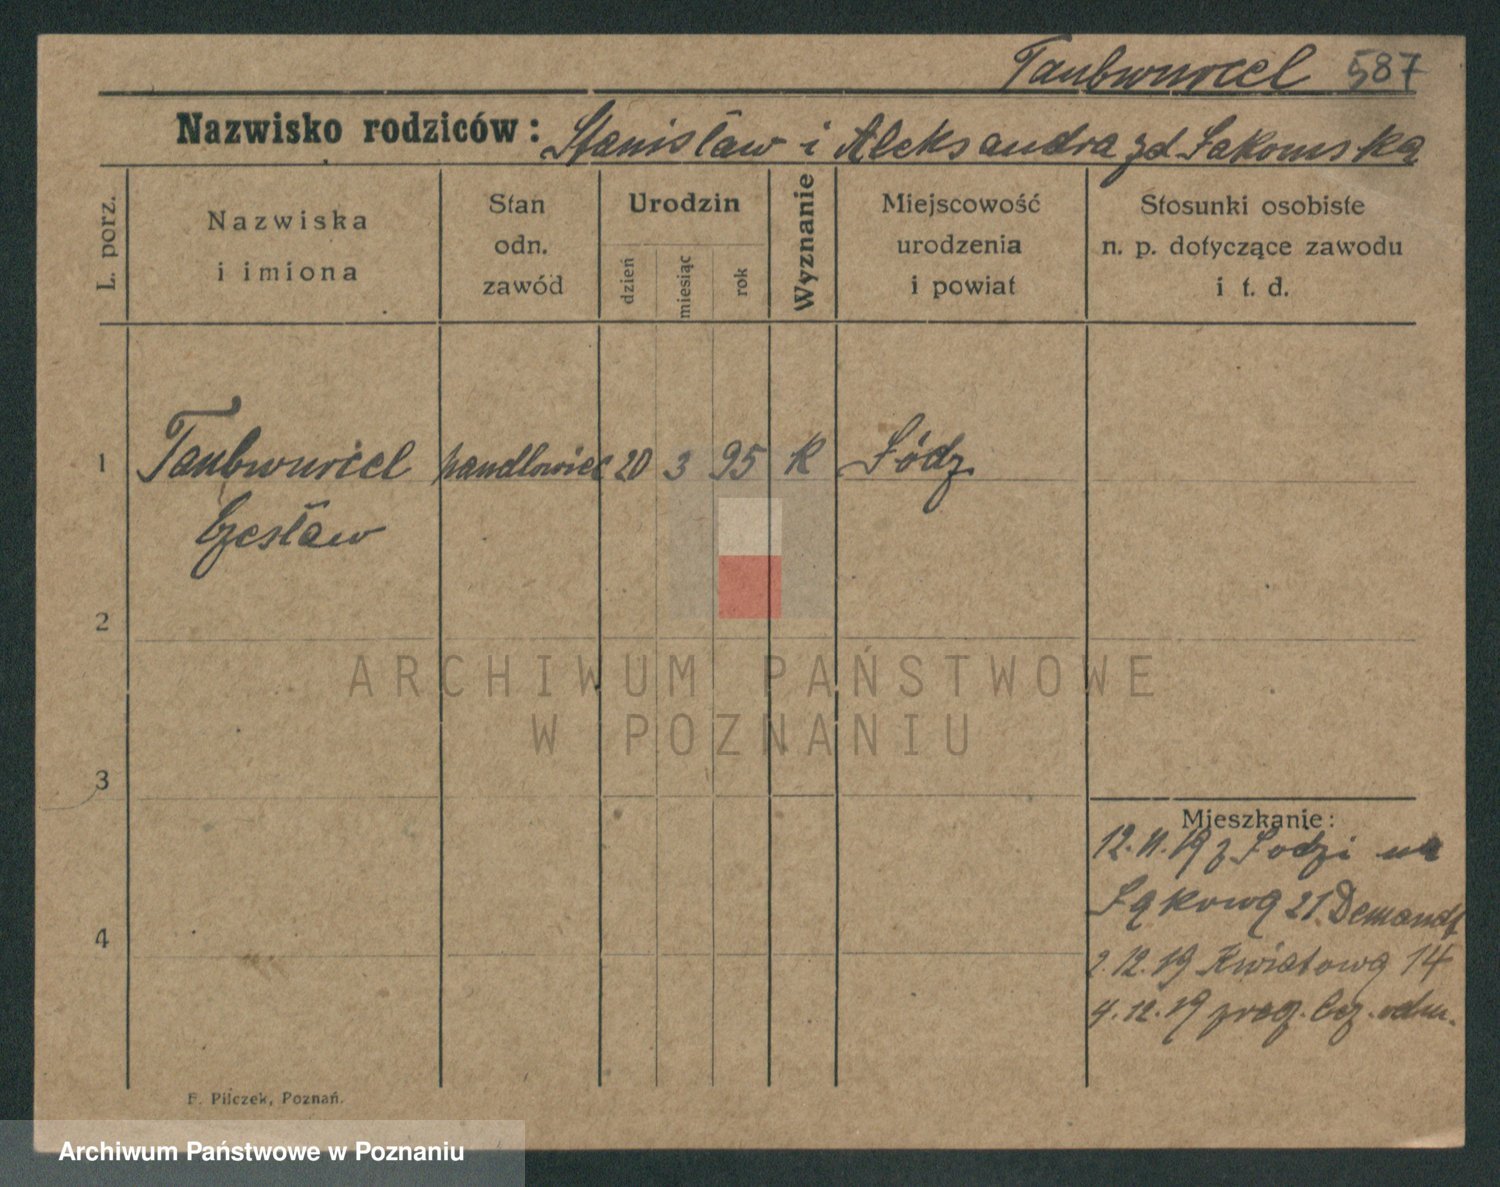 Taubwurcel 587
Nazwisko rodziców: Stanisław i Aleksandra zd Łakomska
L. porz.
Nazwiska
i imiona
Stan
odn.
zawód
Urodzin
dzień
miesiąc
rok
Wyznanie
Miejscowość
urodzenia
i powiat
Stosunki osobiste
n. p. dotyczące zawodu
i t. d.
1 Taubwurcel handlowiec 20 3 95 K Łódz
Czesław
2
3
4
Mieszkanie:
12.11.19 z Łodzi na
Łąkową 21 Demandt
2.12.19 Kwiatowa 14
4.12.19 odm.
F. Pilczek, Poznań.
ARCHIWUM PAŃSTWOWE
W POZNANIU
Archiwum Państwowe w Poznaniu